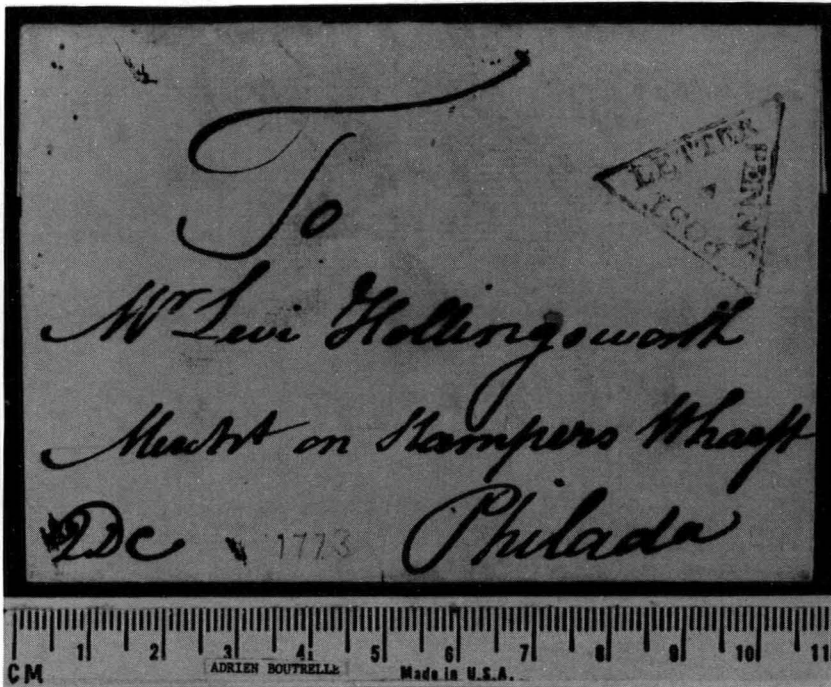 To
LETTER
PENNY
POST
Mr Levi Hollingsworth
Mercht on Stampers Wharff
2Dc 1773 Philada
1 2 3 4 5 6 7 8 9 10 11
CM ADRIEN BOUTRELLE Made in U.S.A.